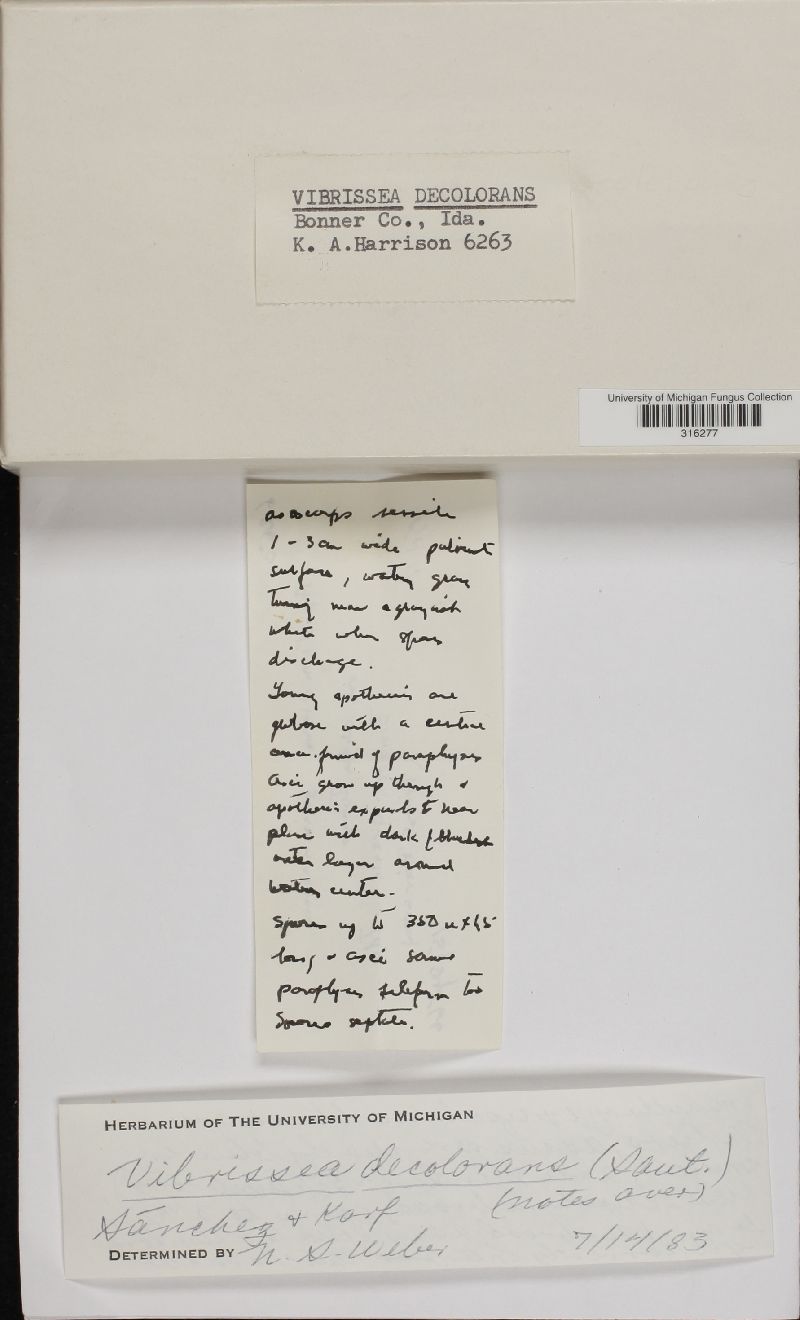 VIBRISSEA DECOLORANS
Bonner Co., Ida.
K. A.Harrison 6263
University of Michigan Fungus Collection
316277
ascocarps sessile
1-3 cm wide
surface, watery gray
turning near a grayish
white when spores
discharge.
Young apothecia are
globose with a central
area formed of paraphyses
asci grow up through &
apothecia expands to near
plane with dark
outer layer around
watery center-
Spores up to 350 u x
long & asci same
paraphyses filiform too
Spores septate.
HERBARIUM OF THE UNIVERSITY OF MICHIGAN
Vibrissea decolorans (Saut.)
Sánchez & Korf (notes over)
DETERMINED BY N. S. Weber 7/14/83